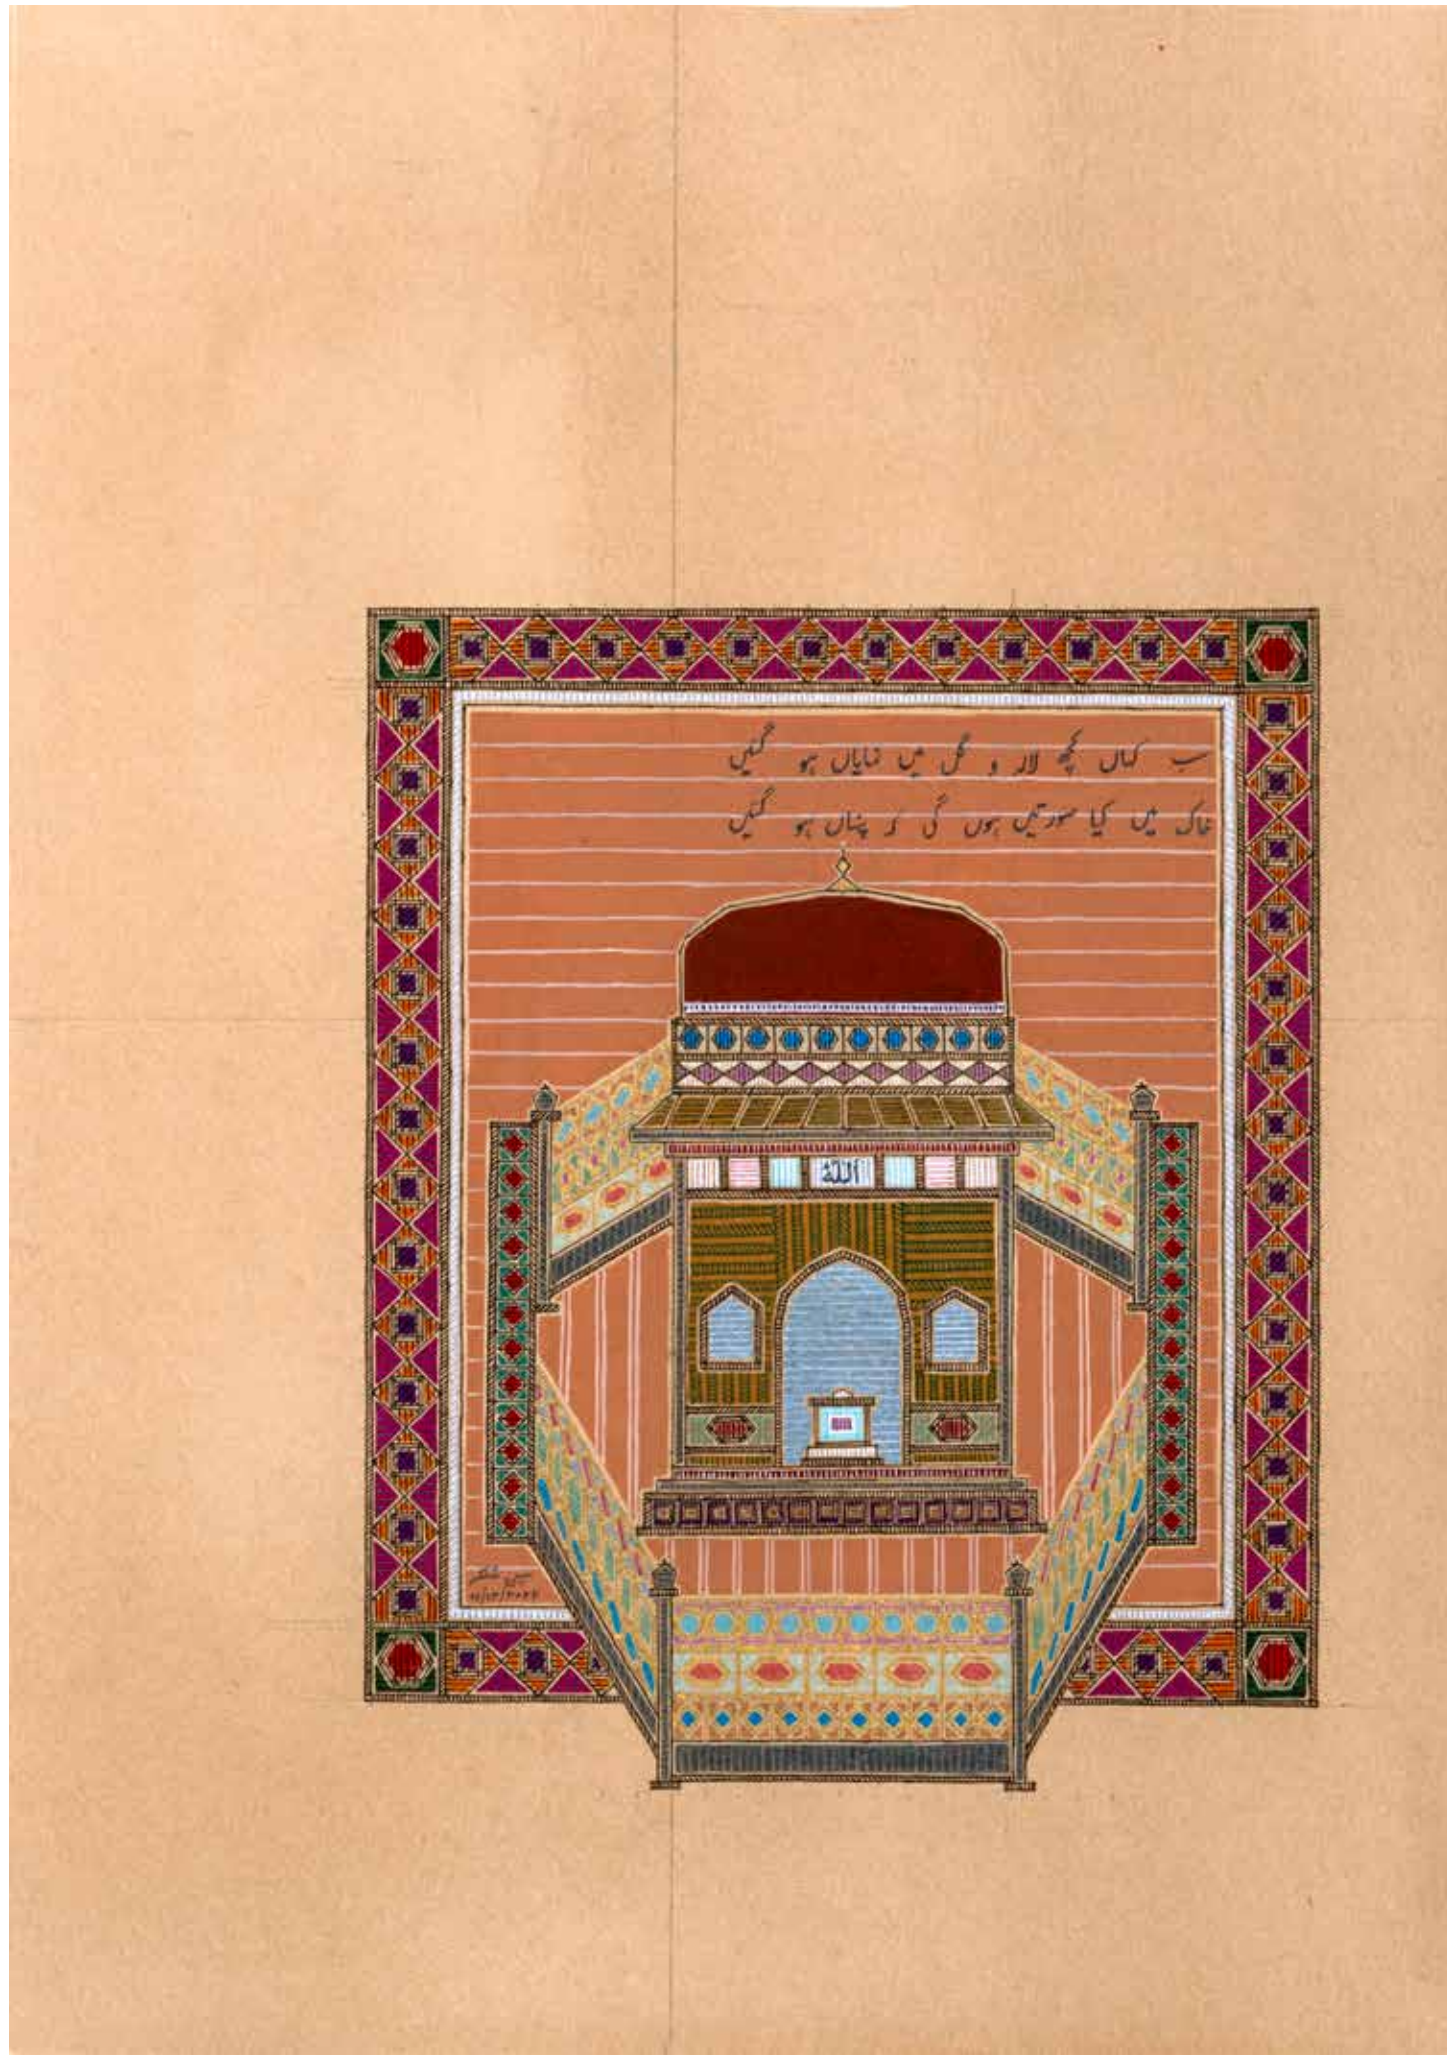 سب کہاں کچھ لالہ و گل میں نمایاں ہو گئیں
خاک میں کیا صورتیں ہوں گی کہ پنہاں ہو گئیں
اللہ